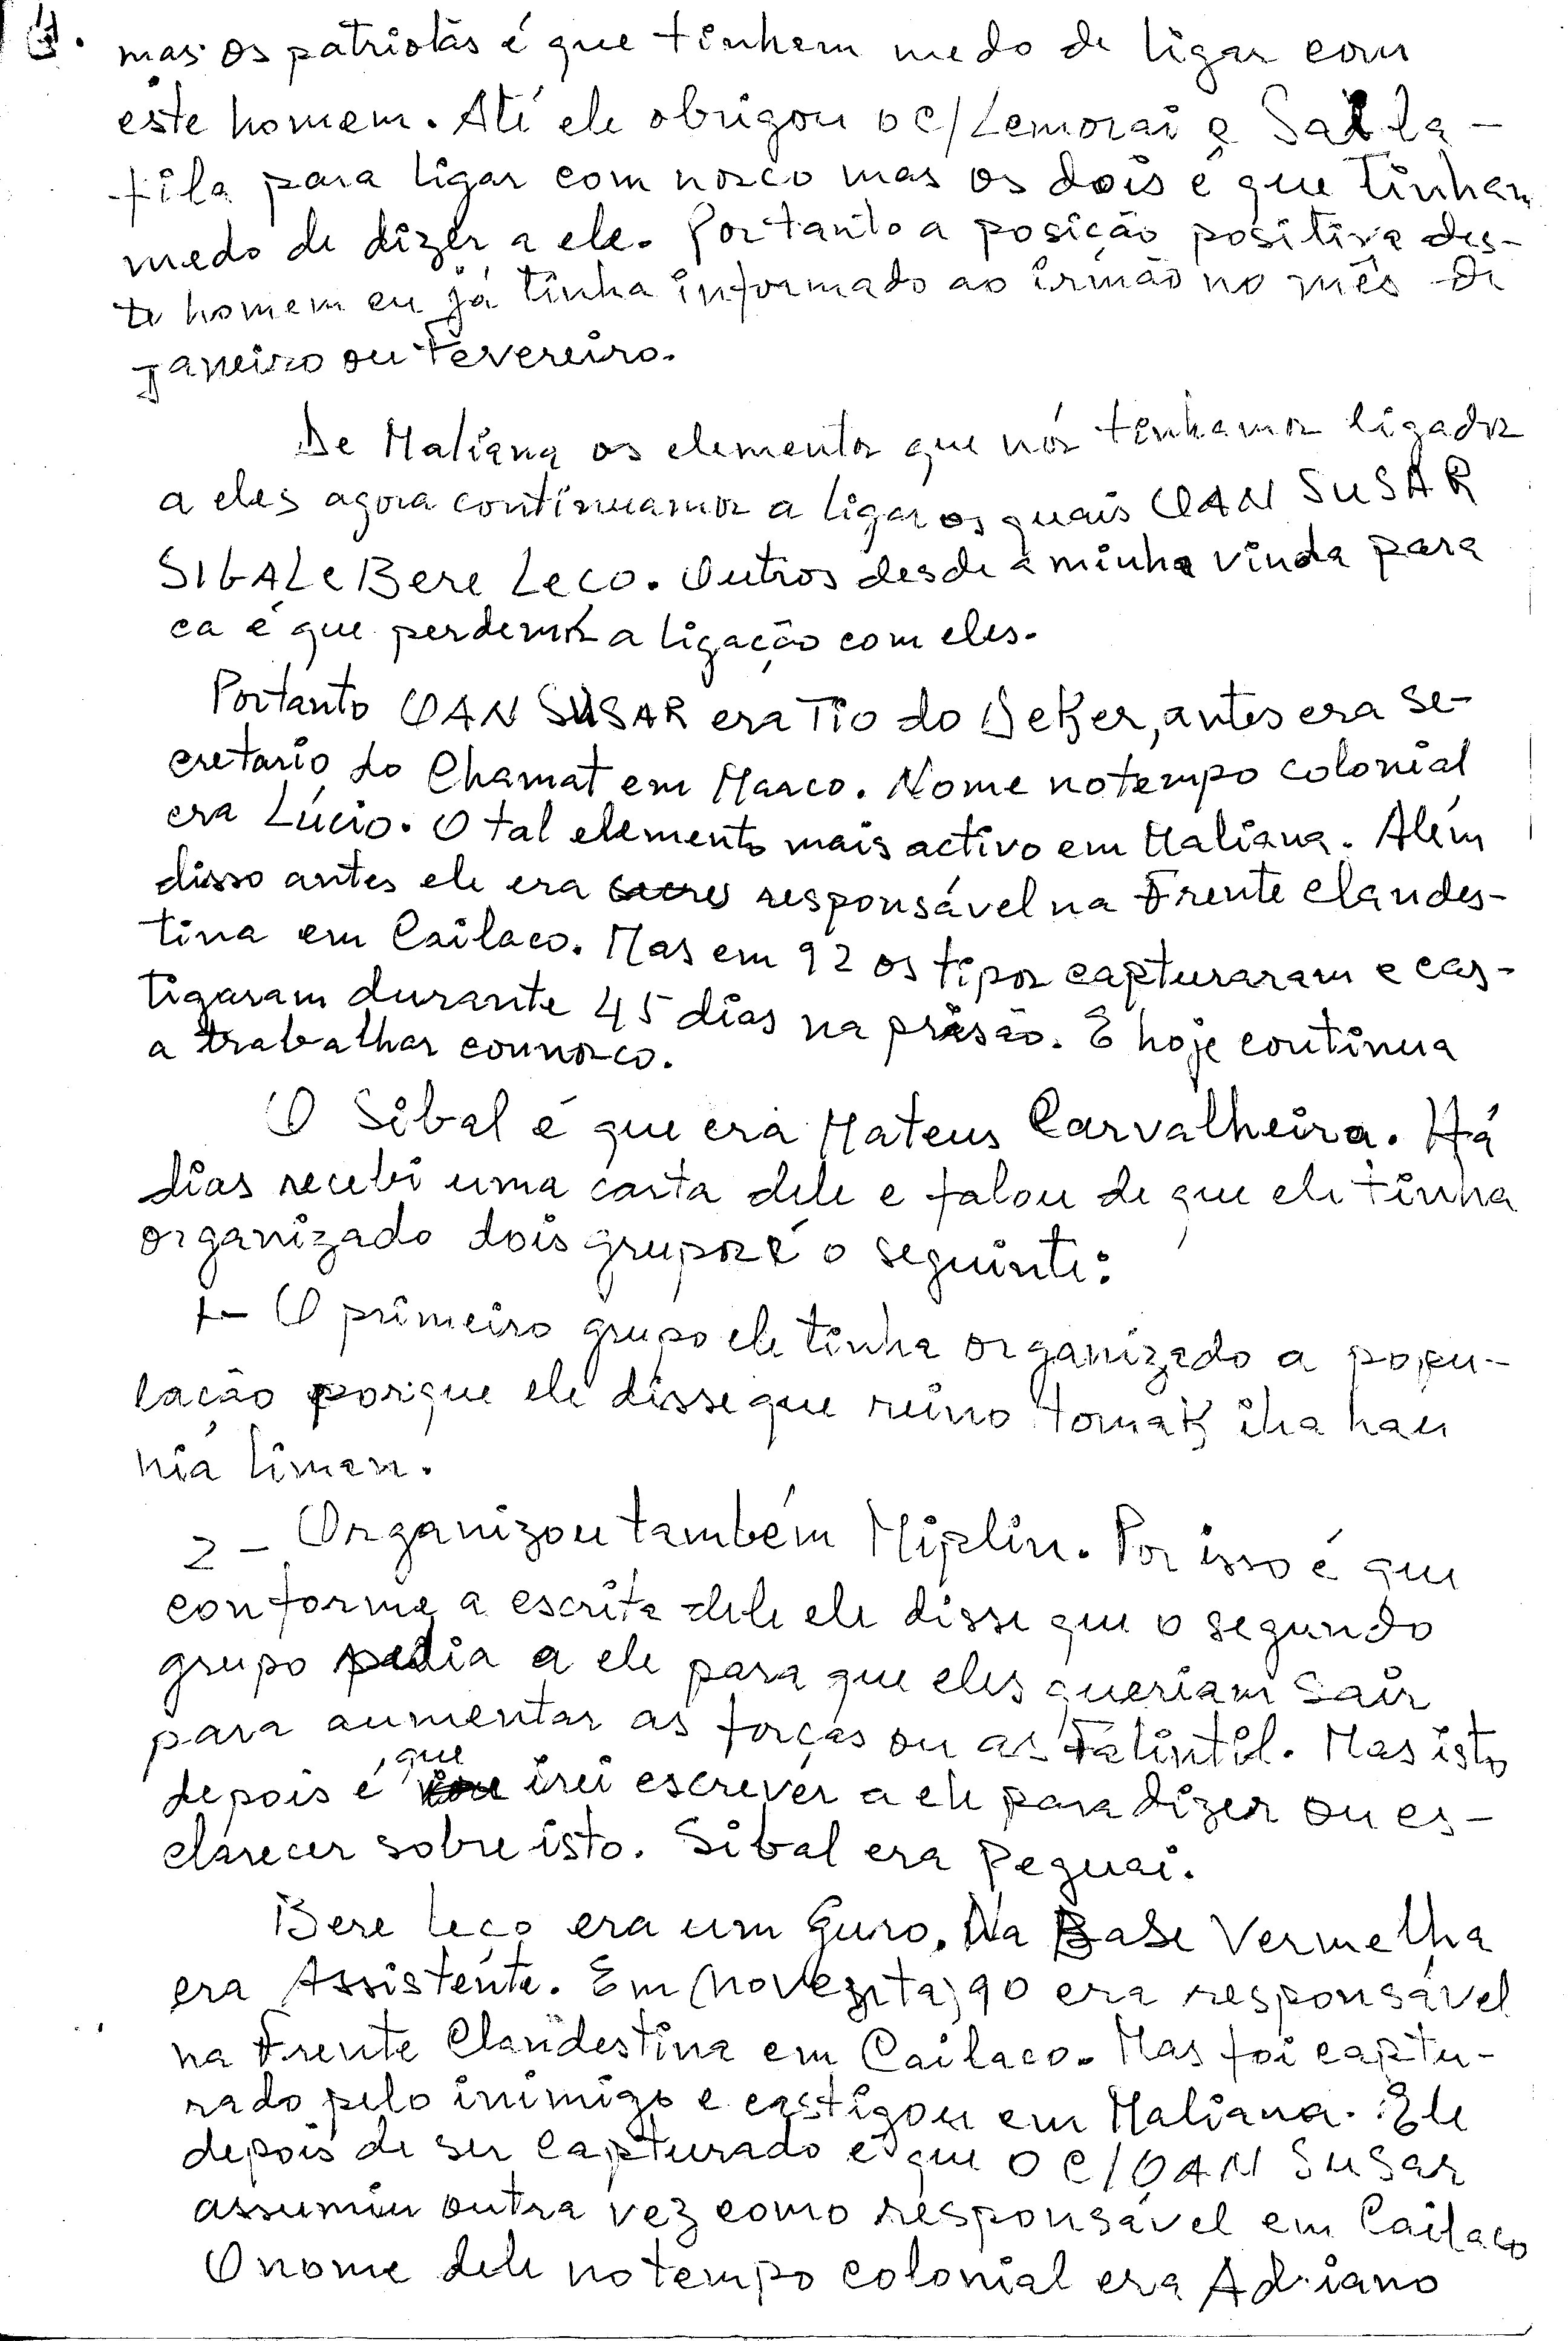 mas os patriotas é que tinham medo de ligar com
este homem. Até ele obrigou o C/Lemorai e Salla-
fila para ligar com nosco mas os dois é que tinham
medo de dizer a ele. Portanto a posição positiva des-
te homem eu já tinha informado ao irmão no mês de
Janeiro ou Fevereiro.
De Maliana os elementos que nós tinhamos ligados
a eles agora continuamos a ligar os quais OAN SUSAR
SIBAL e Bere Leço. Outros desde a minha vinda para
ca é que perdemos a ligação com eles.
Portanto OAN SUSAR era Tio do Deker, antes era se-
cretario do Chamat em Marco. Nome no tempo colonial
era Lúcio. O tal elemento mais activo em Maliana. Além
disso antes ele era responsável na Frente clandes-
tina em Cailaco. Mas em 92 os tipos capturaram e cas-
tigaram durante 45 dias na prisão. E hoje continua
a trabalhar connosco.
O Sibal é que era Mateus Carvalheira. Há
dias recebi uma carta dele e falou de que ele tinha
organizado dois grupos é o seguinte:
1- O primeiro grupo ele tinha organizado a popu-
lação porque ele disse que reino tomak iha hau
nia liman.
2 - Organizou também Miplin. Por isso é que
conforme a escrita dele ele disse que o segundo
grupo pedia a ele para que eles queriam sair
para aumentar as forças ou as Falintil. Mas isto
depois é que irei escrever a ele para dizer ou es-
clarecer sobre isto. Sibal era Peguai.
Bere leço era um Guro. Na Base Vermelha
era Assistente. Em (noventa) 90 era responsável
na Frente Clandestina em Cailaco. Mas foi captu-
rado pelo inimigo e castigou em Maliana. Ele
depois de ser capturado é que o C/OAN Susar
assumiu outra vez como responsável em Cailaco
O nome dele no tempo colonial era Adriano